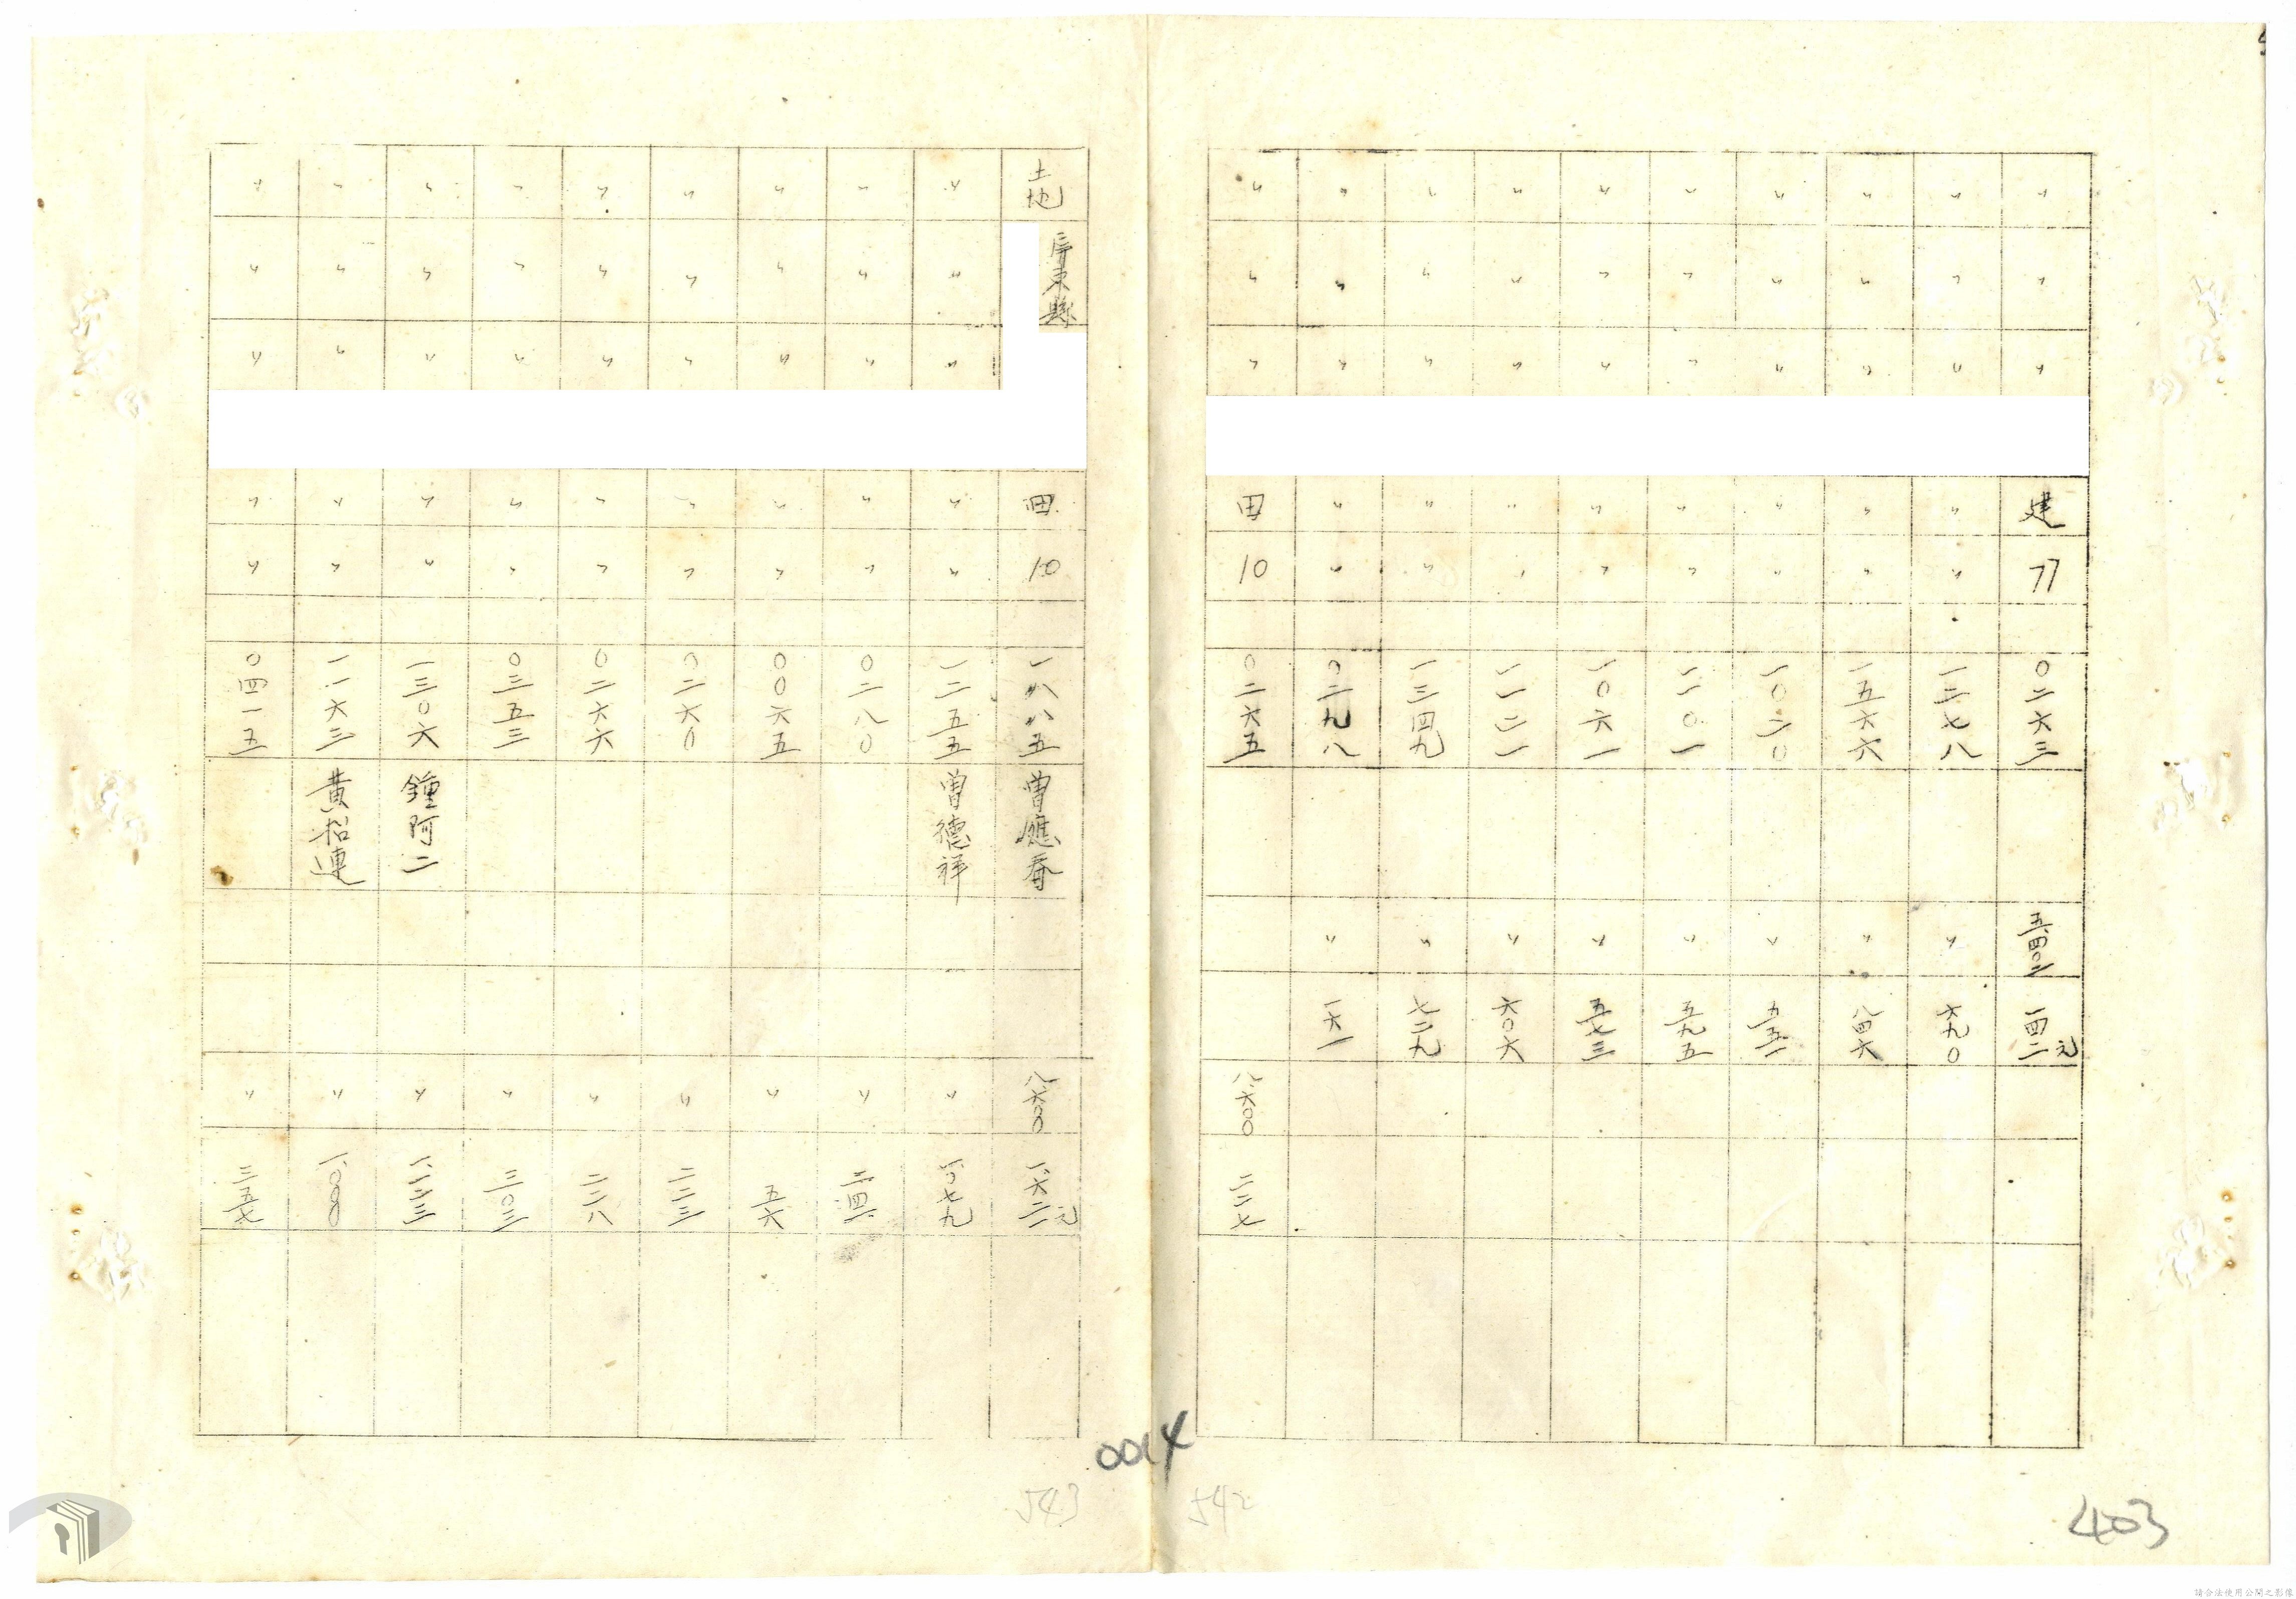 〃 〃 〃 建 77 〇二六三 五、四〇二 一四二元
〃 〃 〃 〃 〃 一二七八 〃 六九〇
〃 〃 〃 〃 〃 一五六六 〃 八四六
〃 〃 〃 〃 〃 一〇二〇 〃 五五一
〃 〃 〃 〃 〃 一一〇一 〃 五九五
〃 〃 〃 〃 〃 一〇六一 〃 五七三
〃 〃 〃 〃 〃 一一二一 〃 六〇六
〃 〃 〃 〃 〃 一三四九 〃 七二九
〃 〃 〃 〃 〃 〇二九八 〃 一六一
〃 〃 〃 田 10 〇二六五 八、六〇〇 二二七
土地 屏東縣 田 10 一八八五 曾應春 八、六〇〇 一、六二一元
〃 〃 〃 〃 〃 一二五五 曾德祥 〃 一、〇七九
〃 〃 〃 〃 〃 〇二八〇 〃 二四一
〃 〃 〃 〃 〃 〇〇六五 〃 五六
〃 〃 〃 〃 〃 〇二六〇 〃 二二三
〃 〃 〃 〃 〃 〇二六六 〃 二二八
〃 〃 〃 〃 〃 〇三五三 〃 三〇三
〃 〃 〃 〃 〃 一三〇六 鍾阿二 〃 一、一二三
〃 〃 〃 〃 〃 一一六三 黃招連 〃 一、〇〇〇
〃 〃 〃 〃 〃 〇四一五 〃 三五七
0014
543
542
403
請合法使用公開之影像